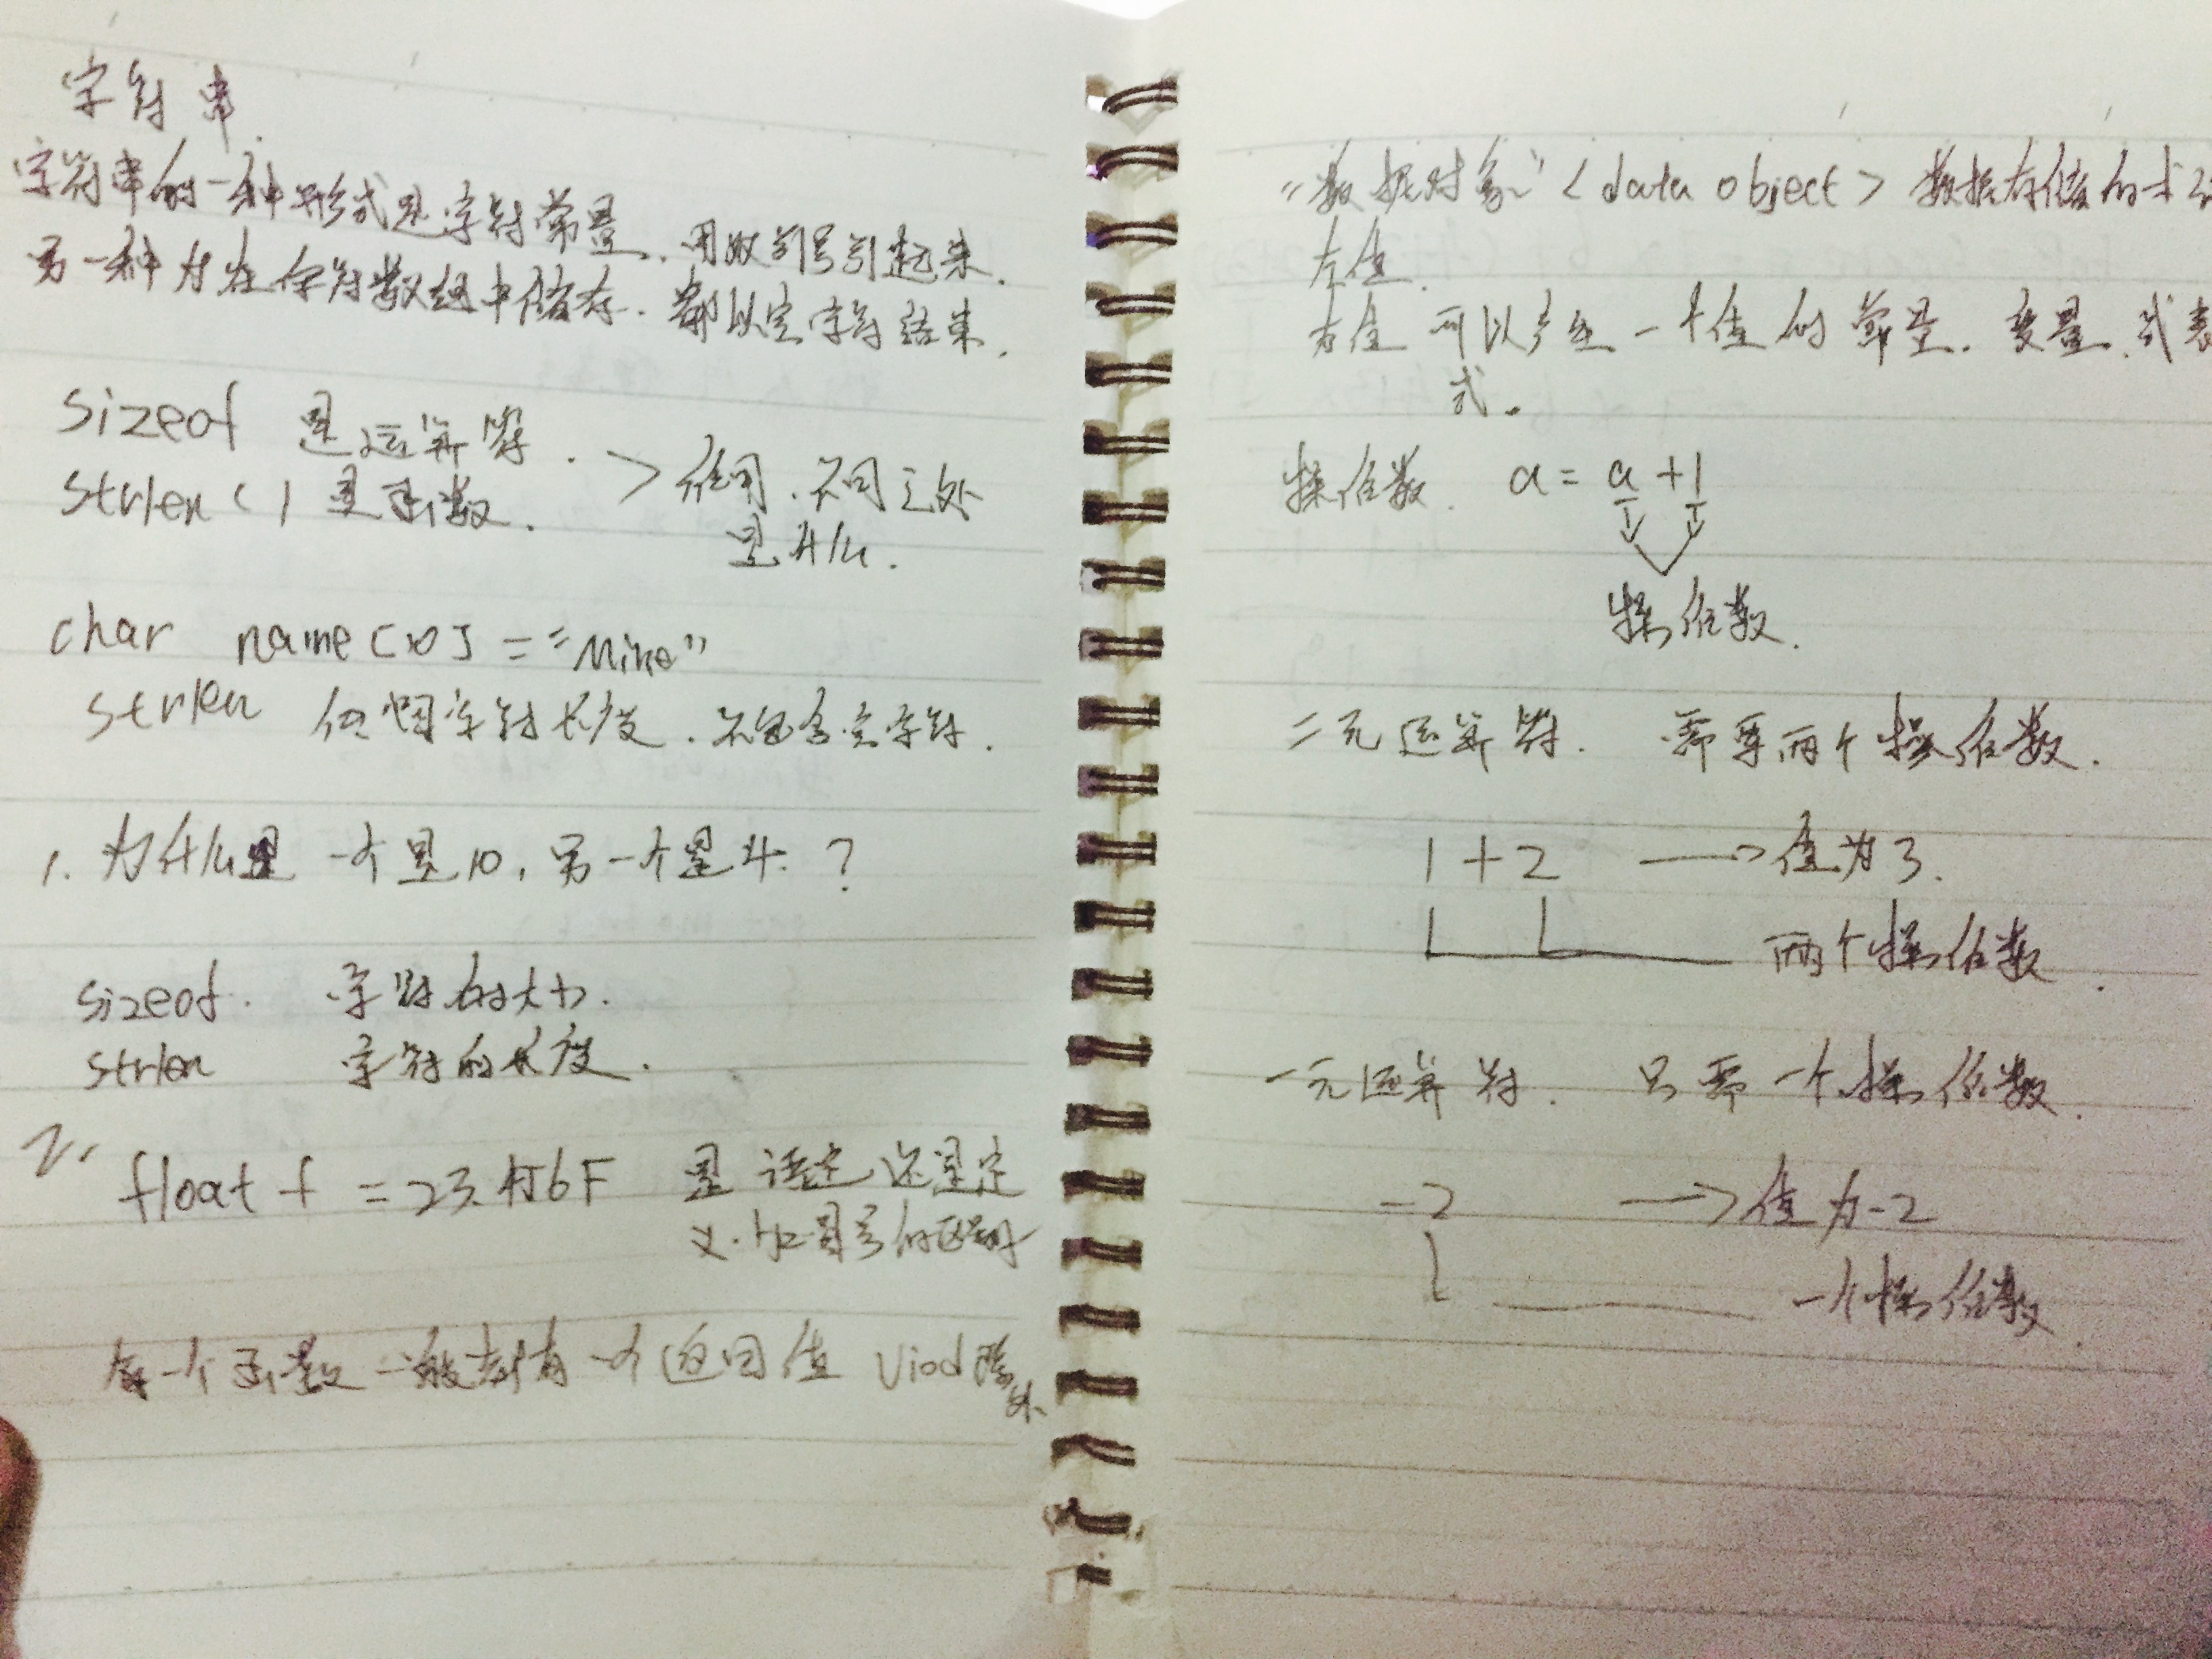 字符串.
字符串的一种形式是字符常量.用双引号引起来.
另一种为在字符数组中储存.都以空字符结束.
sizeof 是运算符.
strlen() 是函数.
> 作用.不同之处
是什么.
char name[10] = "Mike"
strlen 字符长度.不包含空字符.
1. 为什么是一个是10,另一个是4.?
sizeof. 字符的大小.
strlen 字符的长度.
2.
float f = 23.456F 是语句还是定
义.
每一个函数一般都有一个返回值 Viod除外
"数据对象" <data object> 数据存储的
左值.
右值 可以产生一个值的常量.变量.或表
式.
操作数. a = a + 1
操作数.
二元运算符. 需要两个操作数.
1 + 2 → 值为3.
两个操作数.
一元运算符. 只需一个操作数.
-2 → 值为-2
一个操作数.